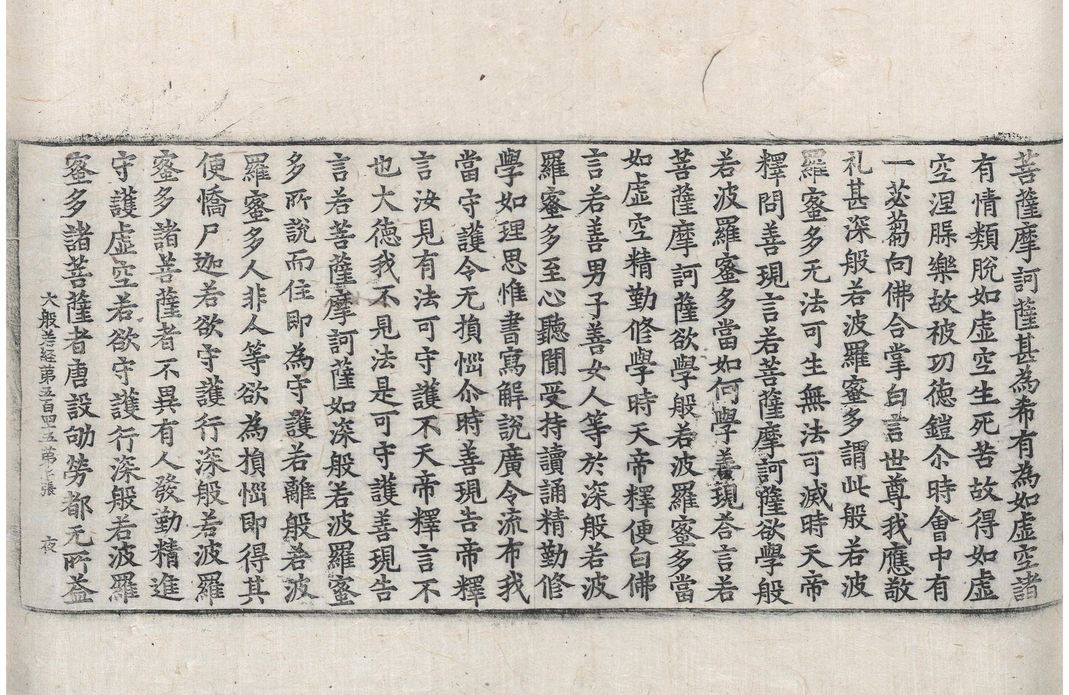 菩薩摩訶薩甚為希有為如虛空諸
有情類脫如虛空生死苦故得如虛
空涅槃樂故被功德鎧尒時會中有
一苾芻向佛合掌白言世尊我應敬
礼甚深般若波羅蜜多謂此般若波
羅蜜多无法可生無法可滅時天帝
釋問善現言若菩薩摩訶薩欲學般
若波羅蜜多當如何學善現荅言若
菩薩摩訶薩欲學般若波羅蜜多當
如虛空精勤修學時天帝釋便白佛
言若善男子善女人等於深般若波
羅蜜多至心聽聞受持讀誦精勤修
學如理思惟書寫解說廣令流布我
當守護令无損惱尒時善現告帝釋
言汝見有法可守護不天帝釋言不
也大德我不見法是可守護善現告
言若菩薩摩訶薩如深般若波羅蜜
多所說而住即為守護若離般若波
羅蜜多人非人等欲為損惱即得其
便憍尸迦若欲守護行深般若波羅
蜜多諸菩薩者不異有人發勤精進
守護虛空若欲守護行深般若波羅
蜜多諸菩薩者唐設劬勞都无所益
大般若經第五百四十五第七張 夜